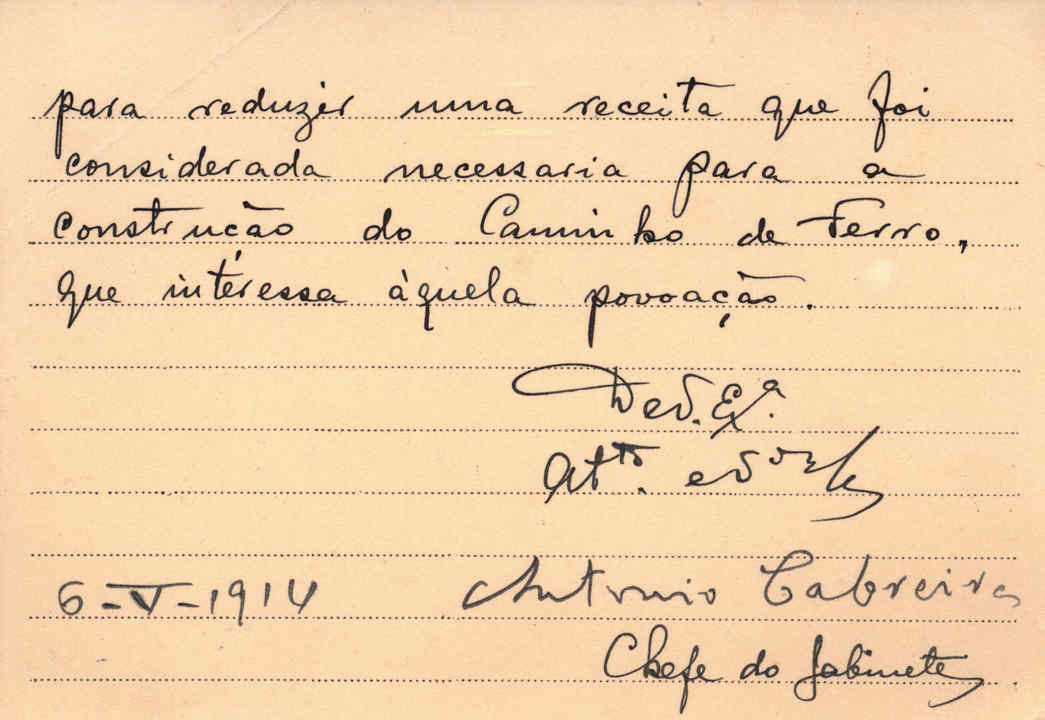 para reduzir uma receita que foi
considerada necessaria para a
construcão do Caminho de Ferro,
que interessa àquela povoação.
De V. Ex.ª
Att.º e V.ºr
6-V-1914 Antonio Cabreira
Chefe do Gabinete